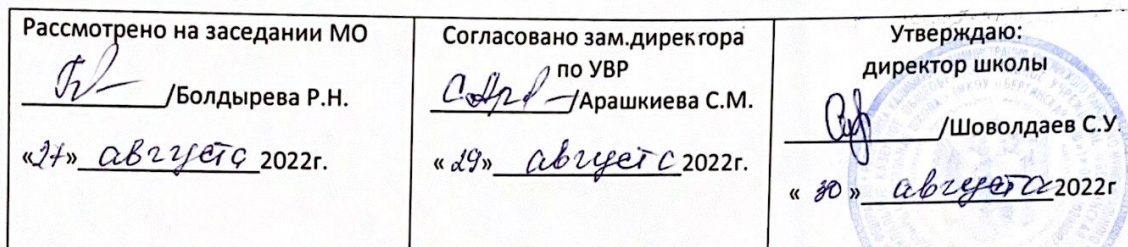 Рассмотрено на заседании МО
/Болдырева Р.Н.
«27» августа 2022г.
Согласовано зам.директора
по УВР
/Арашкиева С.М.
«29» августа 2022г.
Утверждаю:
директор школы
/Шоволдаев С.У.
«30» августа 2022г